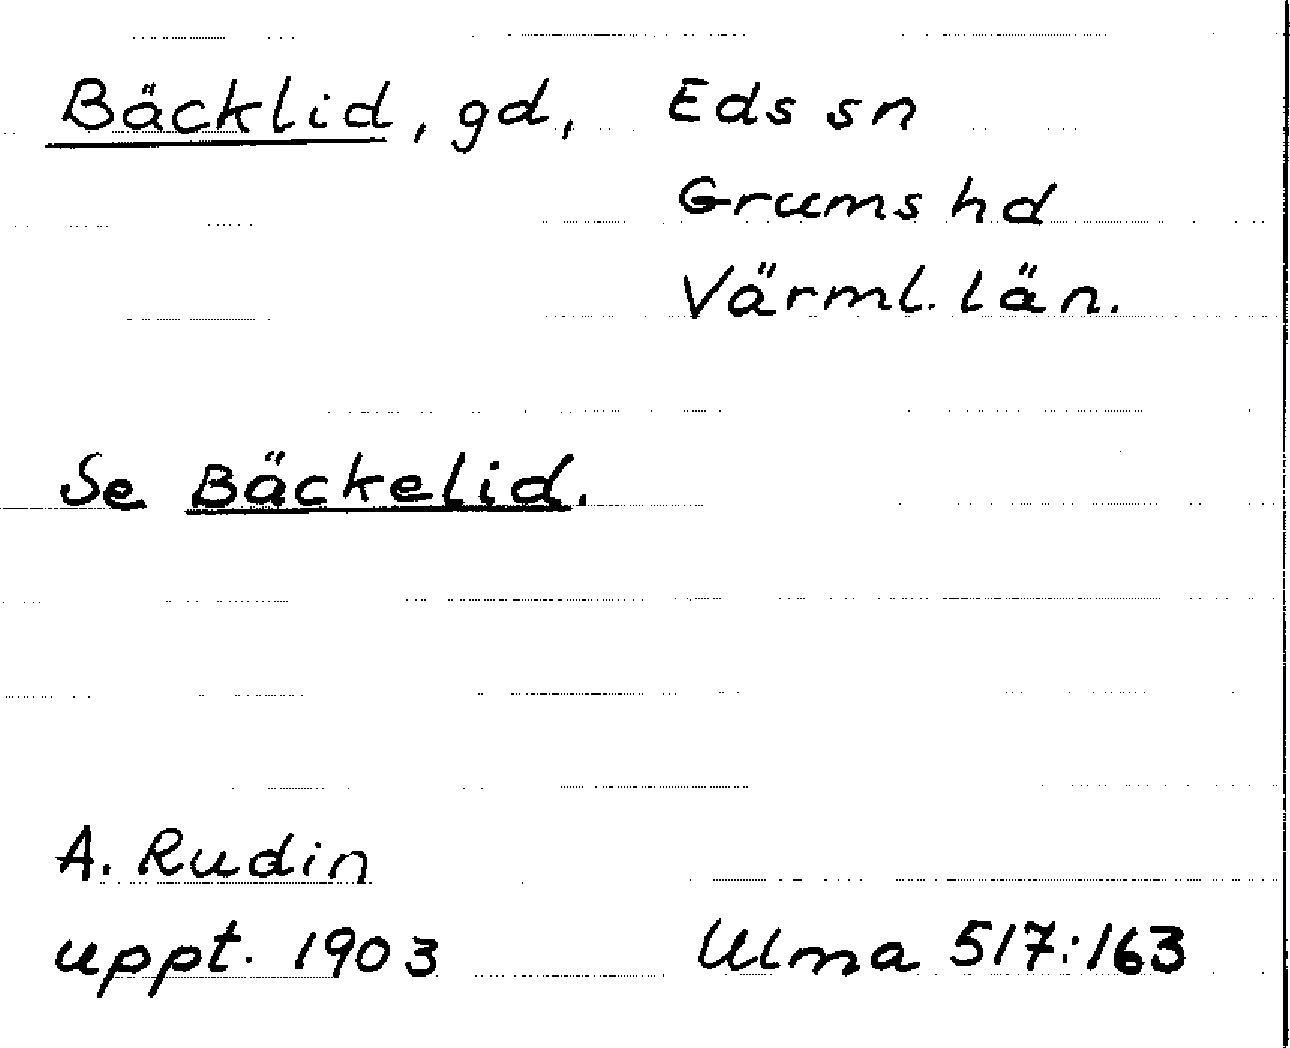 Bäcklid, gd, Eds sn
Grums hd
Värml. län.
Se Bäckelid.
A. Rudin
uppt. 1903 Ulma 517:163